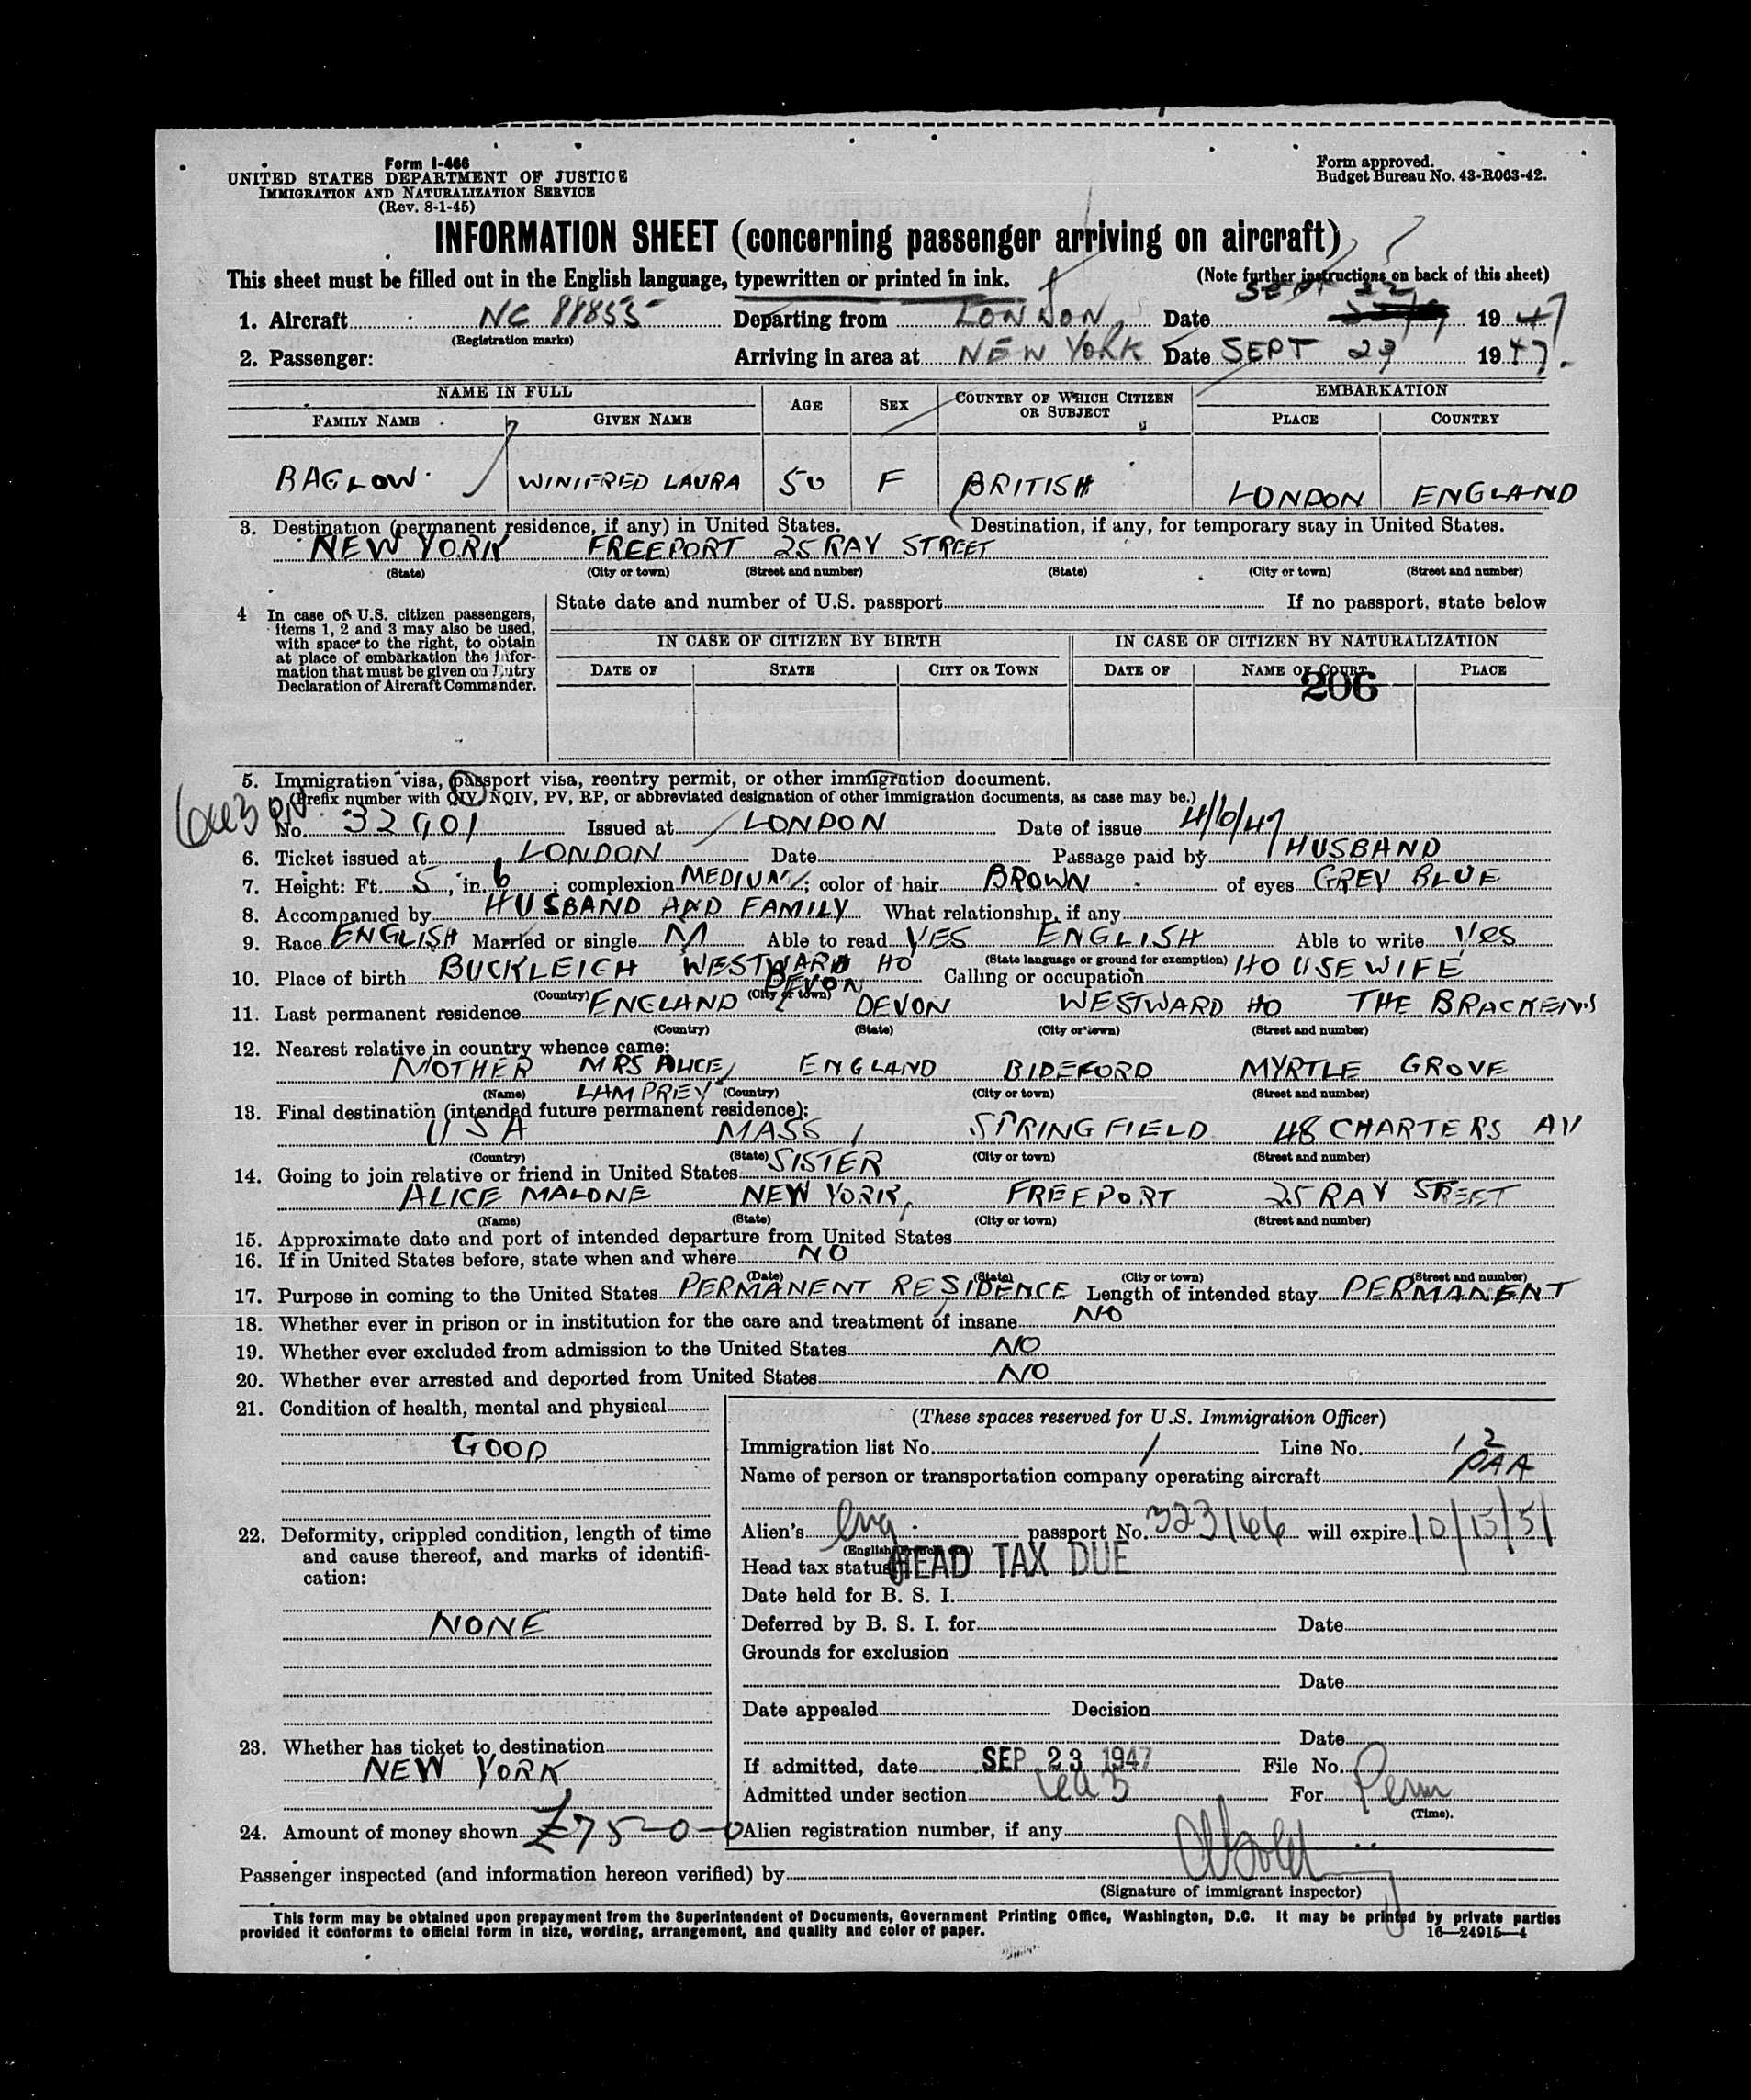 Form I-466
UNITED STATES DEPARTMENT OF JUSTICE
IMMIGRATION AND NATURALIZATION SERVICE
(Rev. 8-1-45)
Form approved.
Budget Bureau No. 43-R063-42.
INFORMATION SHEET (concerning passenger arriving on aircraft)
This sheet must be filled out in the English language, typewritten or printed in ink.
(Note further instructions on back of this sheet)
SEPT 22
1. Aircraft NC 88855 Departing from LONDON Date 1947
(Registration marks)
2. Passenger: Arriving in area at NEW YORK Date SEPT 23 1947.
NAME IN FULL AGE SEX COUNTRY OF WHICH CITIZEN OR SUBJECT EMBARKATION
FAMILY NAME GIVEN NAME PLACE COUNTRY
BAGLOW WINIFRED LAURA 50 F BRITISH LONDON ENGLAND
3. Destination (permanent residence, if any) in United States. Destination, if any, for temporary stay in United States.
NEW YORK FREEPORT 25 RAY STREET
(State) (City or town) (Street and number) (State) (City or town) (Street and number)
4 In case of U.S. citizen passengers, items 1, 2 and 3 may also be used, with space to the right, to obtain at place of embarkation the infor-mation that must be given on Entry Declaration of Aircraft Commander.
State date and number of U.S. passport If no passport, state below
IN CASE OF CITIZEN BY BIRTH IN CASE OF CITIZEN BY NATURALIZATION
DATE OF STATE CITY OR TOWN DATE OF NAME OF COURT PLACE
206
5. Immigration visa, passport visa, reentry permit, or other immigration document.
(Prefix number with QIV, NQIV, PV, RP, or abbreviated designation of other immigration documents, as case may be.)
No. 32901 Issued at LONDON Date of issue 4/6/47
6. Ticket issued at LONDON Date Passage paid by HUSBAND
7. Height: Ft. 5, in. 6; complexion MEDIUM; color of hair BROWN of eyes GREY BLUE
8. Accompanied by HUSBAND AND FAMILY What relationship, if any
9. Race ENGLISH Married or single M Able to read YES ENGLISH Able to write YES
(State language or ground for exemption)
10. Place of birth BUCKLEIGH WESTWARD HO Calling or occupation HOUSEWIFE
DEVON
(Country) (City or town)
11. Last permanent residence ENGLAND DEVON WESTWARD HO THE BRACKENS
(Country) (State) (City or town) (Street and number)
12. Nearest relative in country whence came:
MOTHER MRS ALICE ENGLAND BIDEFORD MYRTLE GROVE
LAMPREY
(Name) (Country) (City or town) (Street and number)
13. Final destination (intended future permanent residence):
USA MASS SPRINGFIELD 48 CHARTERS AV
(Country) (State) (City or town) (Street and number)
14. Going to join relative or friend in United States SISTER
ALICE MALONE NEW YORK, FREEPORT 25 RAY STREET
(Name) (State) (City or town) (Street and number)
15. Approximate date and port of intended departure from United States
16. If in United States before, state when and where NO
(Date) (State) (City or town) (Street and number)
17. Purpose in coming to the United States PERMANENT RESIDENCE Length of intended stay PERMANENT
18. Whether ever in prison or in institution for the care and treatment of insane NO
19. Whether ever excluded from admission to the United States NO
20. Whether ever arrested and deported from United States NO
21. Condition of health, mental and physical
GOOD
22. Deformity, crippled condition, length of time
and cause thereof, and marks of identifi-
cation:
NONE
23. Whether has ticket to destination
NEW YORK
24. Amount of money shown £75-0-0
(These spaces reserved for U.S. Immigration Officer)
Immigration list No. 1 Line No. 12
Name of person or transportation company operating aircraft PAA
Alien's Eng passport No. 323166 will expire 10/15/51
Head tax status HEAD TAX DUE
Date held for B. S. I.
Deferred by B. S. I. for Date
Grounds for exclusion
Date
Date appealed Decision
Date
If admitted, date SEP 23 1947 File No.
Admitted under section For Perm
(Time).
Alien registration number, if any
Passenger inspected (and information hereon verified) by
(Signature of immigrant inspector)
This form may be obtained upon prepayment from the Superintendent of Documents, Government Printing Office, Washington, D.C. It may be printed by private parties
provided it conforms to official form in size, wording, arrangement, and quality and color of paper.
16—24915—4